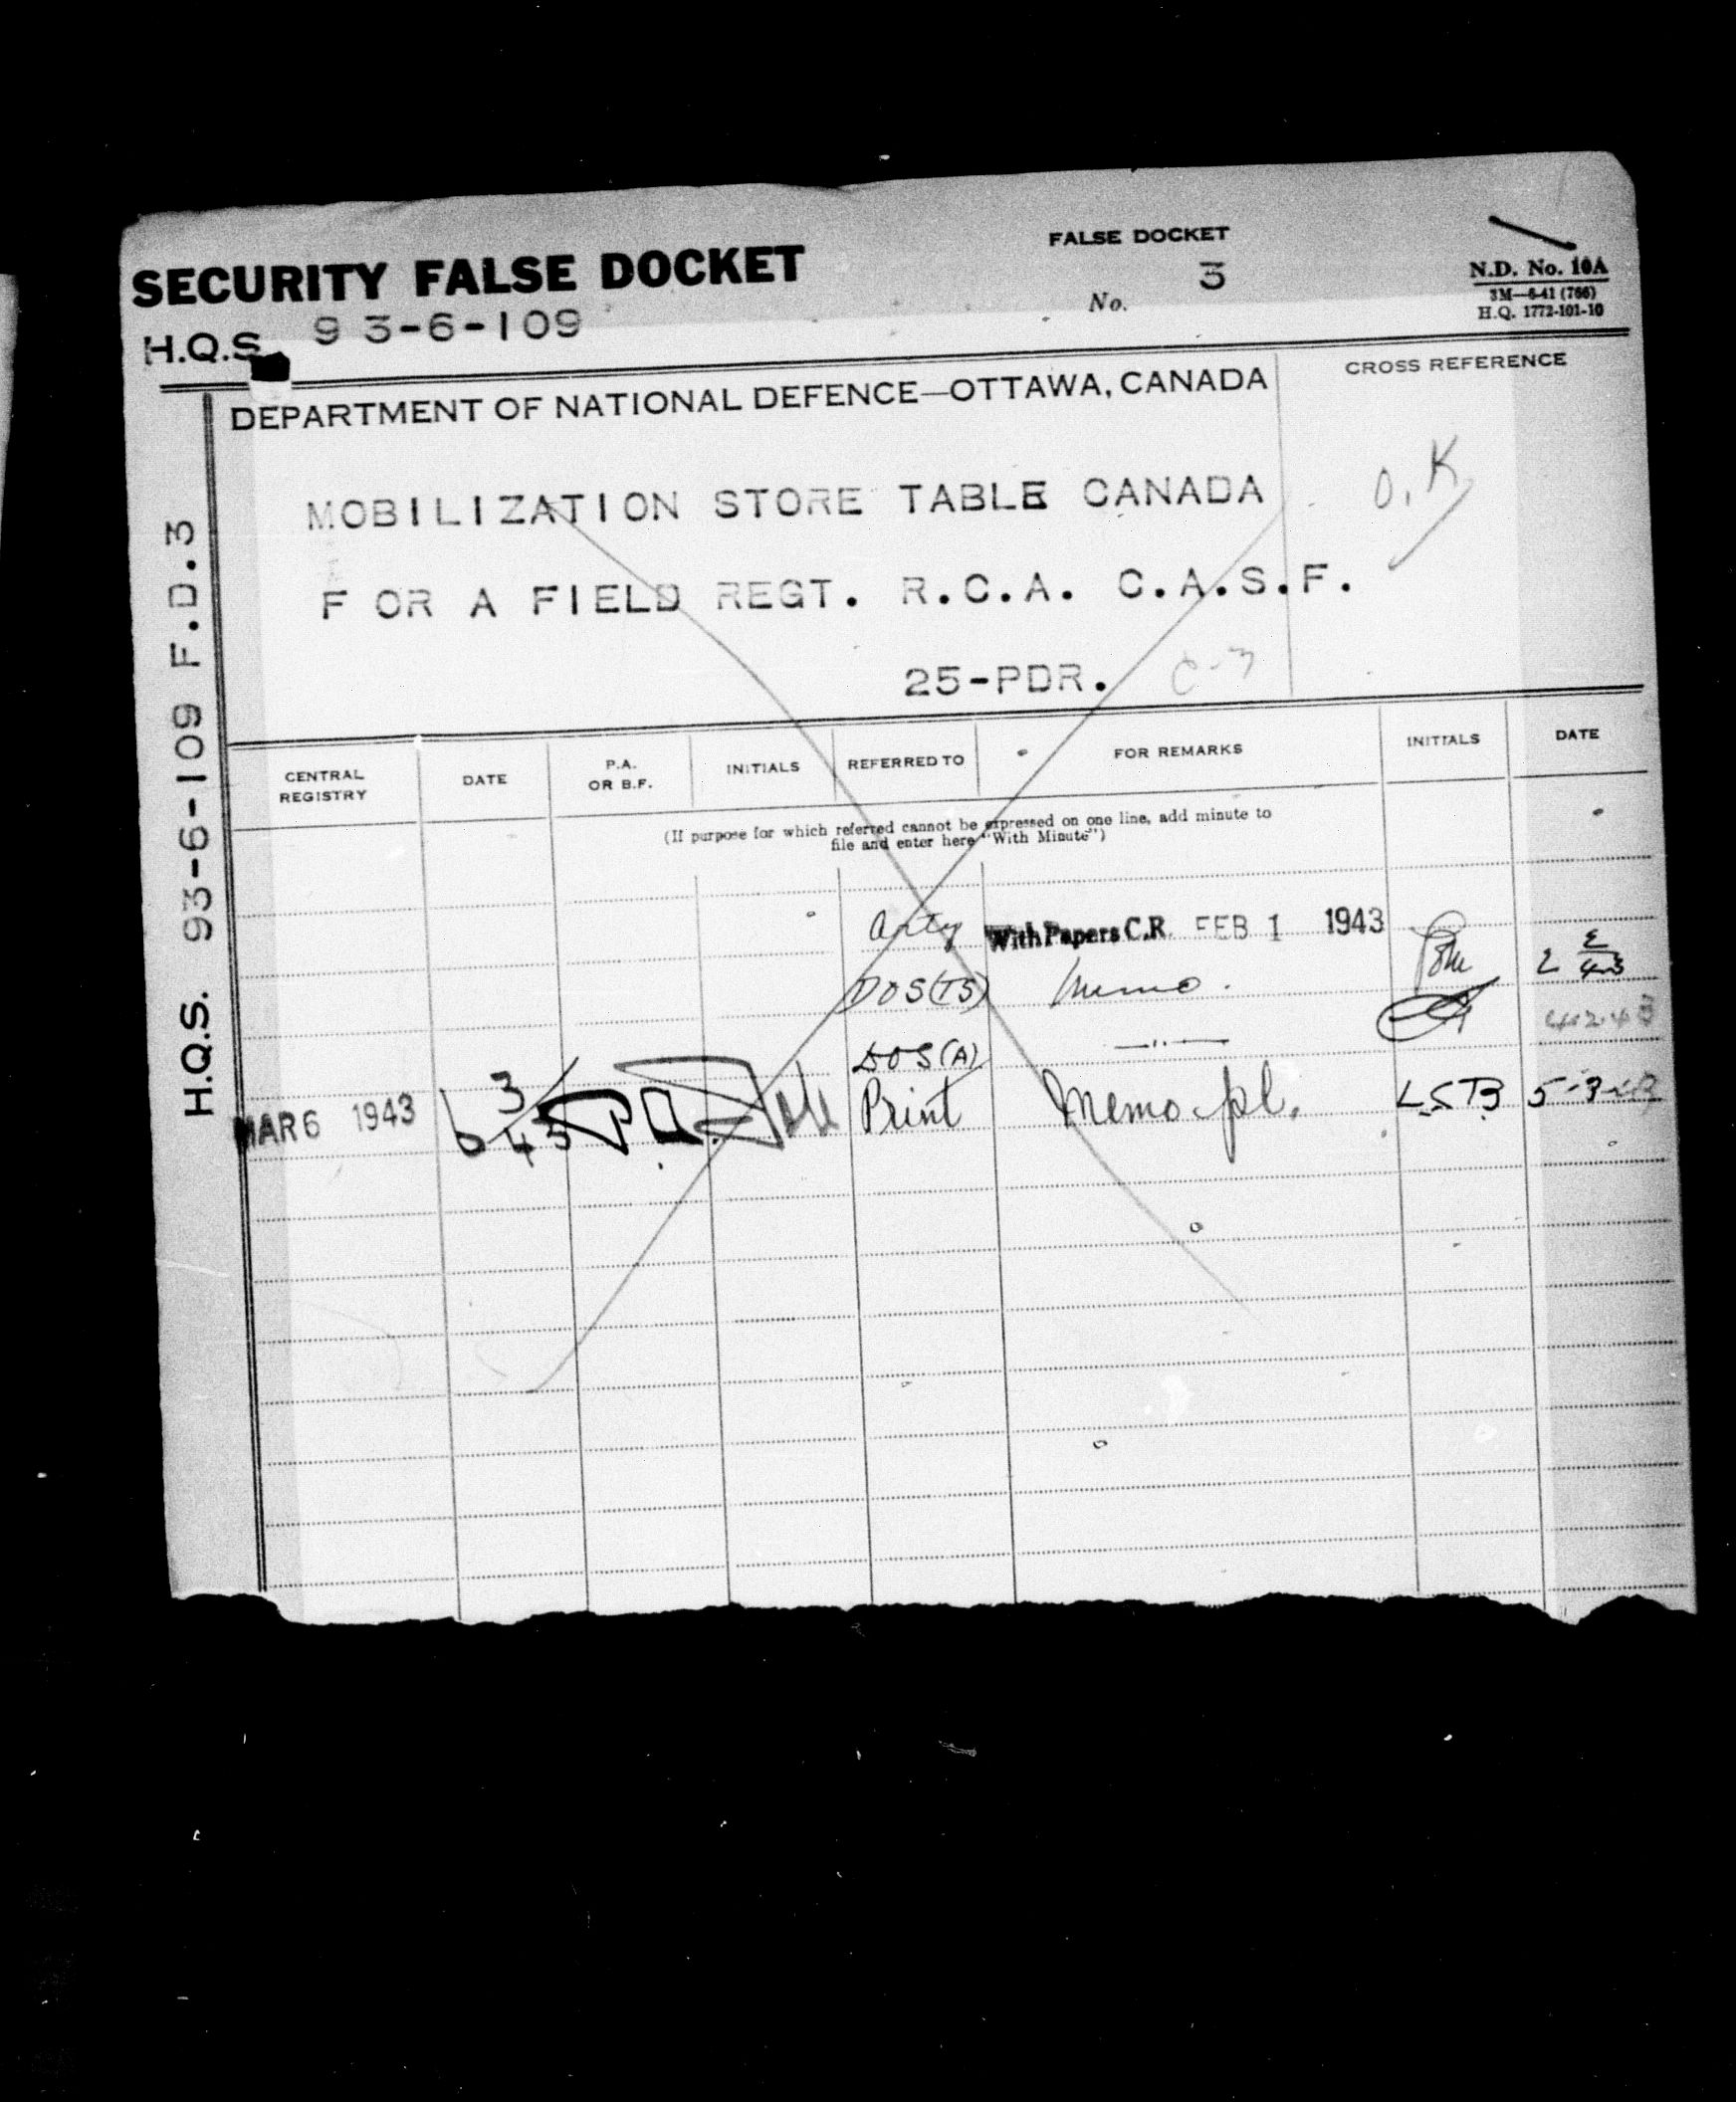 SECURITY FALSE DOCKET
FALSE DOCKET
No. 3
N.D. No. 10A
3M—6-41 (766)
H.Q. 1772-101-10
H.Q.S. 93-6-109
DEPARTMENT OF NATIONAL DEFENCE—OTTAWA, CANADA
CROSS REFERENCE
O.K
MOBILIZATION STORE TABLE CANADA
FOR A FIELD REGT. R.C.A. C.A.S.F.
25-PDR. C-3
H.Q.S. 93-6-109 F.D.3
CENTRAL REGISTRY DATE P.A. OR B.F. INITIALS REFERRED TO FOR REMARKS INITIALS DATE
(If purpose for which referred cannot be expressed on one line, add minute to
file and enter here "With Minute")
Arty With Papers C.R FEB 1 1943
DOS(TS) Memo. 2 2/43
DOS(A) —"— 4.2.43
MAR 6 1943 6 3/43 P.A. Print Memo pl. LSTB 5-3-43